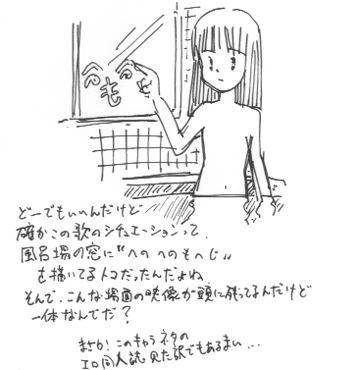 へ へ
も
どーでもいいんだけど
確かこの歌のシチュエーションって、
風呂場の窓に"へのへのもへじ"
を描いてるトコだったんだよね
そんで、こんな場面の映像が頭に残ってるんだけど
一体なんでだ?
まさか!このキャラネタの
エロ同人誌見た訳でもあるまい…